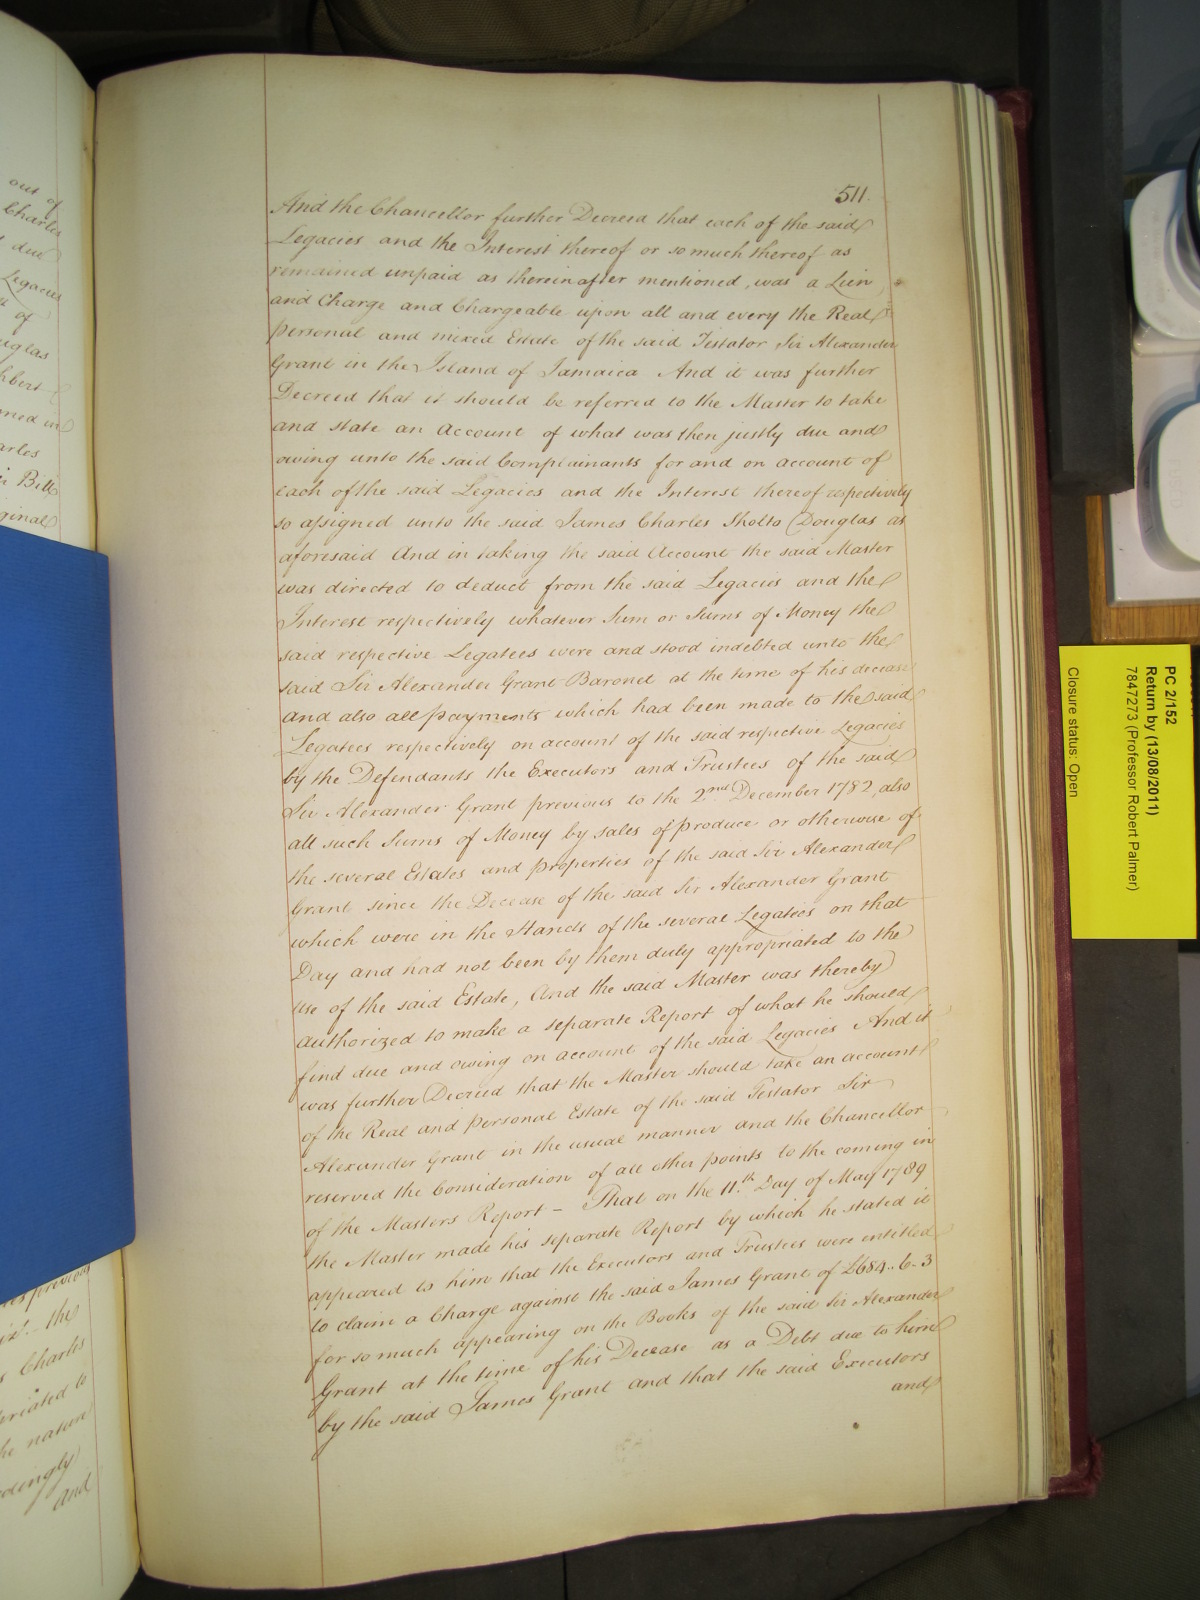 511.
And the Chancellor further Decreed that each of the said
Legacies and the Interest thereof or so much thereof as
remained unpaid as thereinafter mentioned, was a Lien
and Charge and Chargeable upon all and every the Real
personal and mixed Estate of the said Testator Sir Alexander
Grant in the Island of Jamaica And it was further
Decreed that it should be referred to the Master to take
and state an Account of what was then justly due and
owing unto the said Complainants for and on account of
each of the said Legacies and the Interest thereof respectively
so assigned unto the said James Charles Sholto Douglas as
aforesaid And in taking the said Account the said Master
was directed to deduct from the said Legacies and the
Interest respectively whatever Sum or Sums of Money the
said respective Legatees were and stood indebted unto the
said Sir Alexander Grant Baronet at the time of his decease
and also all payments which had been made to the said
Legatees respectively on account of the said respective Legacies
by the Defendants the Executors and Trustees of the said
Sir Alexander Grant previous to the 2nd December 1782, also
all such Sums of Money by sales of produce or otherwise of
the several Estates and properties of the said Sir Alexander
Grant since the Decease of the said Sir Alexander Grant
which were in the Hands of the several Legatees on that
Day and had not been by them duly appropriated to the
use of the said Estate, And the said Master was thereby
authorized to make a separate Report of what he should
find due and owing on account of the said Legacies And it
was further Decreed that the Master should take an account
of the Real and personal Estate of the said Testator Sir
Alexander Grant in the usual manner and the Chancellor
reserved the Consideration of all other points to the coming in
of the Masters Report - That on the 11.th Day of May 1789
the Master made his separate Report by which he stated it
appeared to him that the Executors and Trustees were entitled
to claim a Charge against the said James Grant of £684..6-3
for so much appearing on the Books of the said Sir Alexander
Grant at the time of his Decease as a Debt due to him
by the said James Grant and that the said Executors
and
out of
Charles
due
Legacies
of
uglas
arles
Bill
ginal
previous
the
Charles
riated to
nature
dingly
and
PC 2/152
Return by (13/08/2011)
7847273 (Professor Robert Palmer)
Closure status: Open